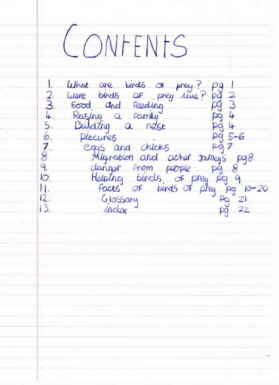 CONTENTS
1. What are birds of prey? pg 1
2. Were birds of prey live? pg 2
3. Food and feeding pg 3
4. Rasing a family pg 4
5. Building a nest pg 4
6. pictures pg 5-6
7. eggs and chicks pg 7
8 Migration and other pg 8
9. danger from people pg 8
10. Helping birds of prey pg 9
11. facts of birds of prey pg 10-20
12. Glossary pg 21
13. index pg 22